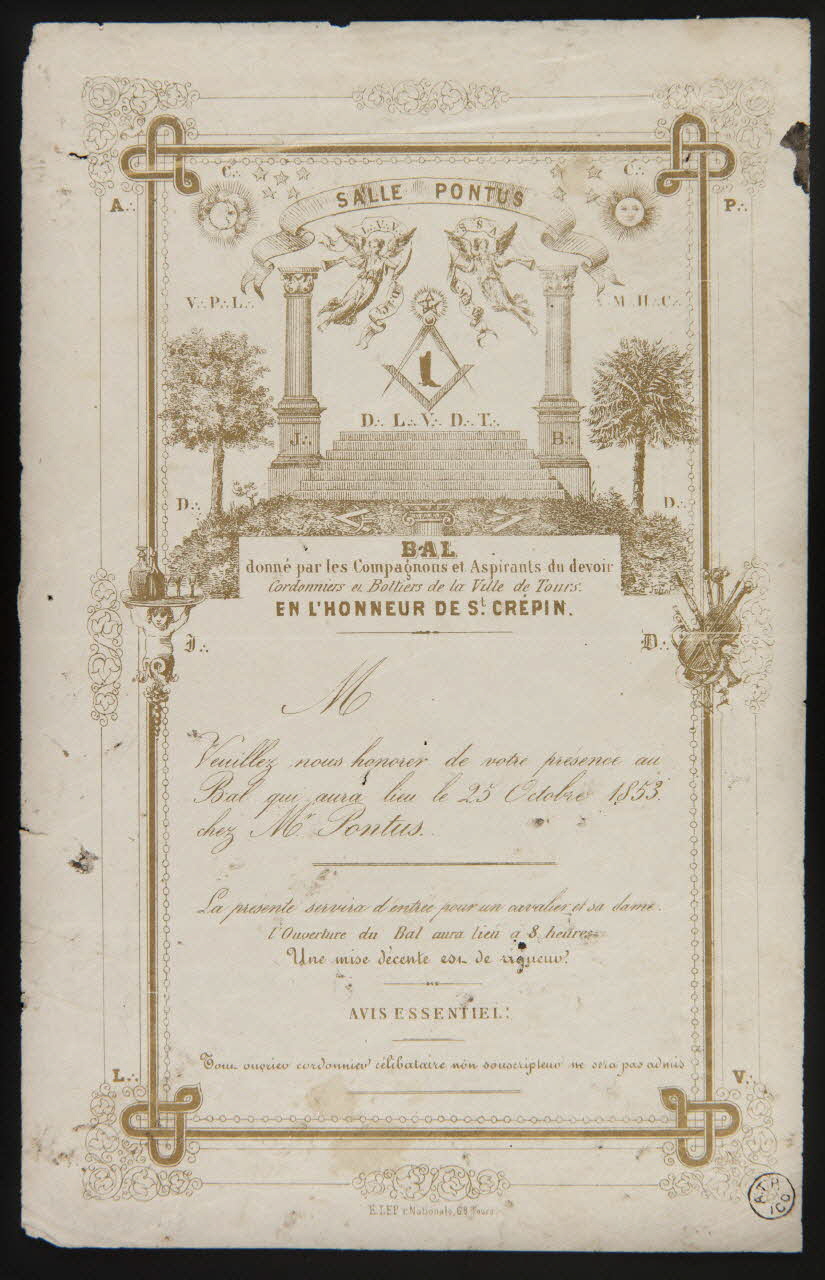 C∴ C∴
SALLE PONTUS
A∴ P∴
L.V.V. S S A
V∴ P∴ L∴ M H∴ C∴
D∴ L∴ V∴ D∴ T∴
J∴ B∴
D∴ D∴
BAL
donné par les Compagnons et Aspirants du devoir
Cordonniers et Bottiers de la Ville de Tours.
EN L'HONNEUR DE St. CRÉPIN.
J∴ D∴
M
Veuillez nous honorer de votre présence au
Bal qui aura lieu le 25 Octobre 1853.
chez Mr Pontus.
La présente servira d'entrée pour un cavalier et sa dame.
l'Ouverture du Bal aura lieu à 8 heures
Une mise décente est de rigueur.
AVIS ESSENTIEL:
Tout ouvrier cordonnier célibataire non souscripteur ne sera pas admis
L∴ V∴
r. Nationale, 68 Tours.